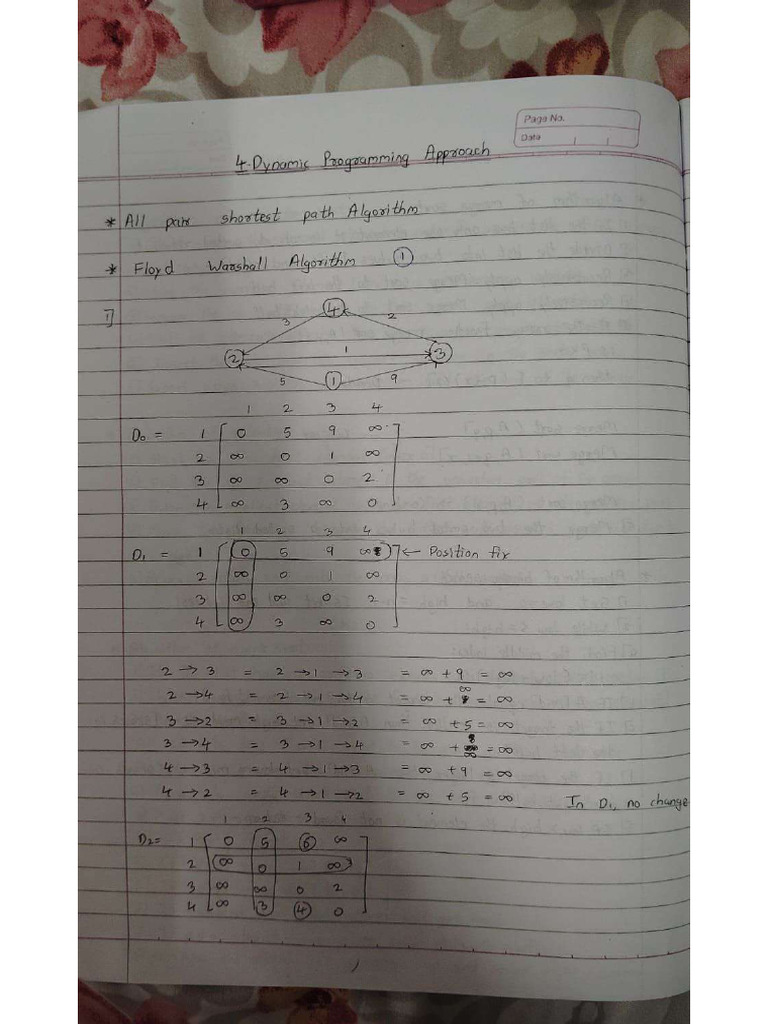 Page No.
Date
4 Dynamic Programming Approach
* All pair shortest path Algorithm
* Floyd Warshall Algorithm ①
1]
4
3 2
2 1 3
5 1 9
1 2 3 4
D₀ = 1 [ 0 5 9 ∞ ]
2 ∞ 0 1 ∞
3 ∞ ∞ 0 2
4 ∞ 3 ∞ 0
1 2 3 4
D₁ = 1 [ 0 5 9 ∞ ] ← Position fix
2 ∞ 0 1 ∞
3 ∞ ∞ 0 2
4 ∞ 3 ∞ 0
2 → 3 = 2 → 1 → 3 = ∞ + 9 = ∞
2 → 4 = 2 → 1 → 4 = ∞ + ∞ = ∞
3 → 2 = 3 → 1 → 2 = ∞ + 5 = ∞
3 → 4 = 3 → 1 → 4 = ∞ + ∞ = ∞
4 → 3 = 4 → 1 → 3 = ∞ + 9 = ∞
4 → 2 = 4 → 1 → 2 = ∞ + 5 = ∞ In D₁, no change
1 2 3 4
D₂ = 1 [ 0 5 6 ∞ ]
2 ∞ 0 1 ∞
3 ∞ ∞ 0 2
4 ∞ 3 4 0